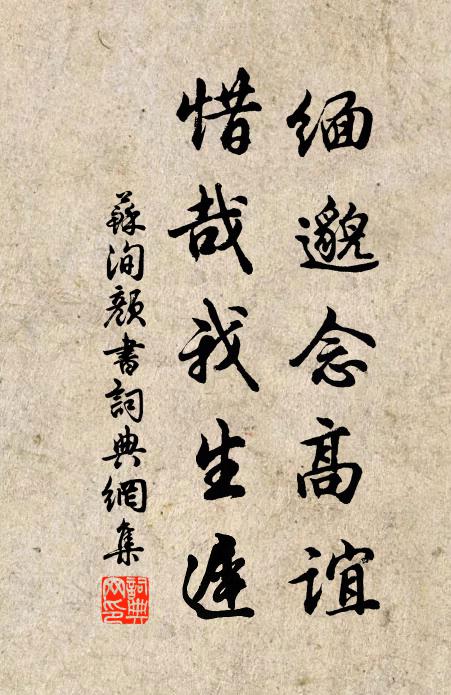 緬邈念高誼
惜哉我生遲
蘇洵顏書詞典網集
詞典網印